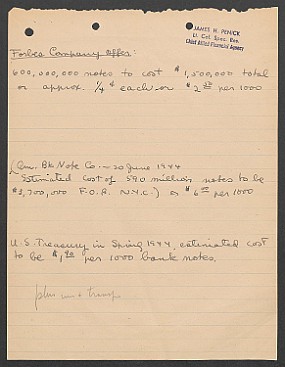 JAMES H. PENICK
Lt. Col. Spec. Res.
Chief Allied Financial Agency
Forbes Company Offer:
600,000,000 notes to cost $1,500,000 total
or approx. 1/4¢ each or $2.50 per 1000
(Am. Bk Note Co. - 20 June 1944
Estimated cost of 590 million notes to be
$3,700,000 F.O.R. N.Y.C.) or $6 per 1000
U.S. Treasury in Spring 1944, estimated cost
to be $1.20 per 1000 bank notes.
plus ins + transp